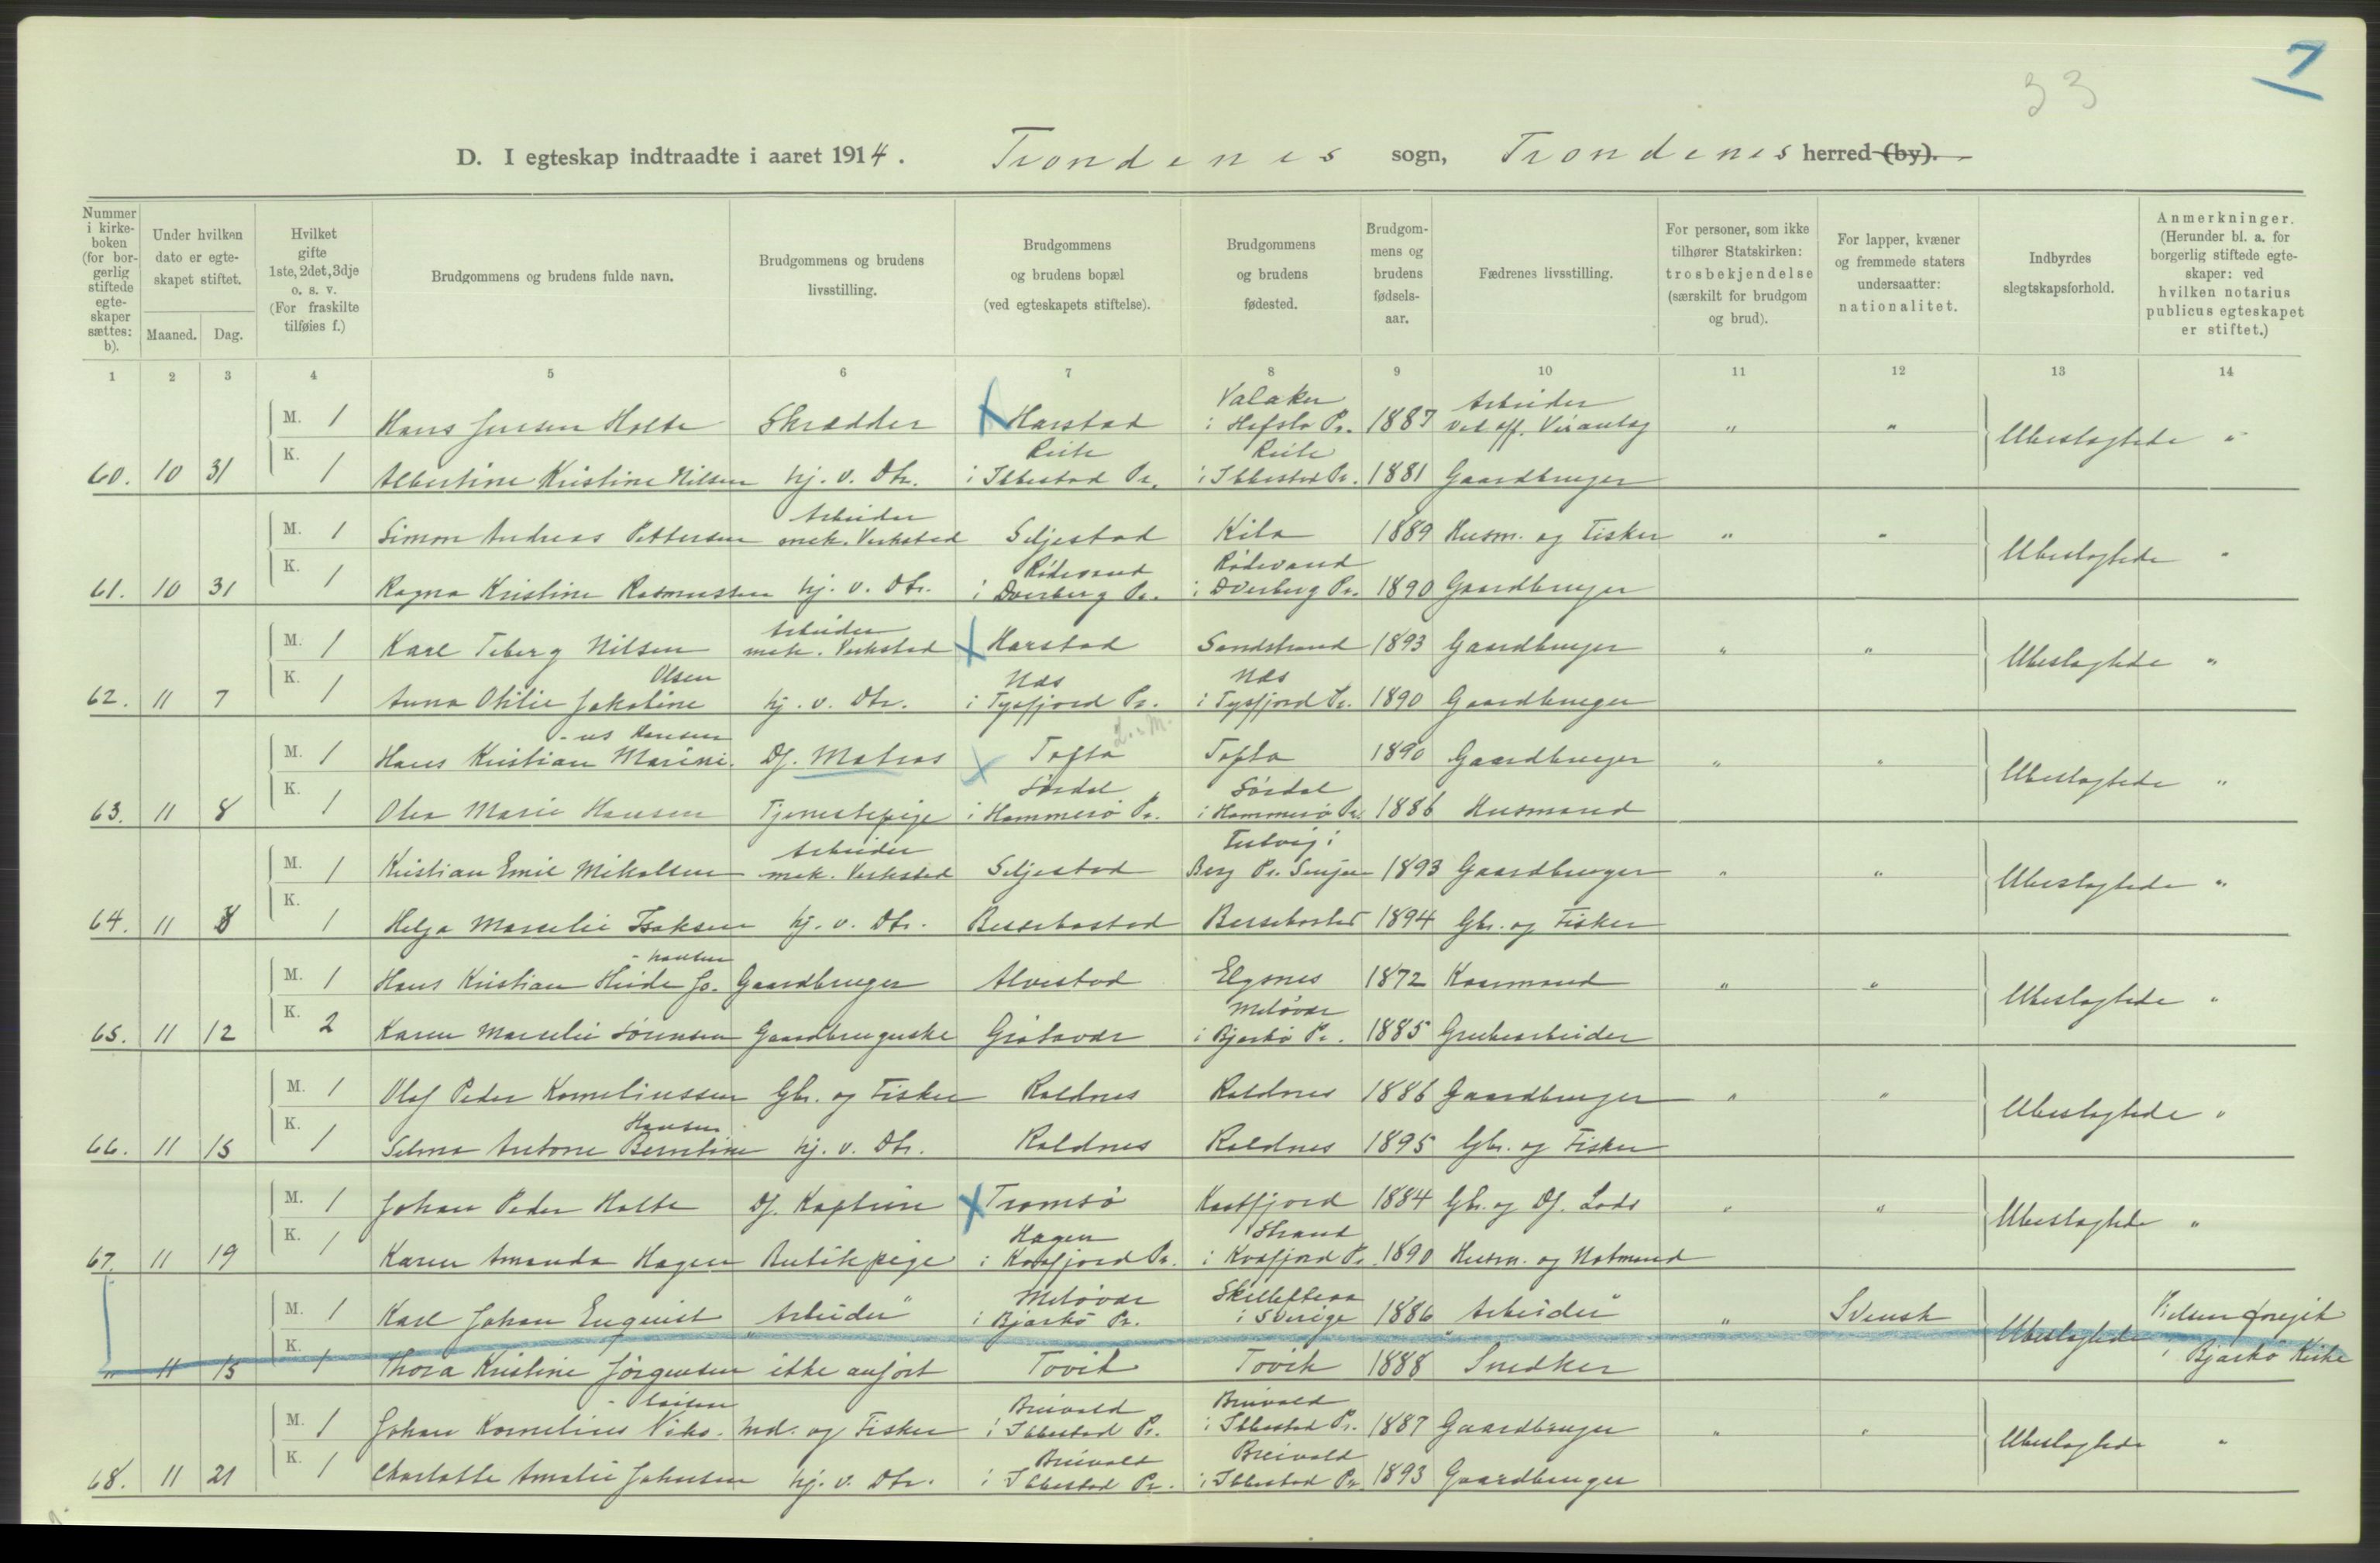 7
33
D. I egteskap indtraadte i aaret 1914. Trondenes sogn, Trondenes herred (by).
Nummer i kirkeboken (for borgerlig stiftede egteskaper sættes: b).
Under hvilken dato er egteskapet stiftet.
Maaned. Dag.
Hvilket gifte 1ste, 2det, 3dje o. s. v. (For fraskilte tilføies f.)
Brudgommens og brudens fulde navn.
Brudgommens og brudens livsstilling.
Brudgommens og brudens bopæl (ved egteskapets stiftelse).
Brudgommens og brudens fødested.
Brudgommens og brudens fødselsaar.
Fædrenes livsstilling.
For personer, som ikke tilhører Statskirken: trosbekjendelse (særskilt for brudgom og brud).
For lapper, kvæner og fremmede staters undersaatter: nationalitet.
Indbyrdes slegtskapsforhold.
Anmerkninger. (Herunder bl. a. for borgerlig stiftede egteskaper: ved hvilken notarius publicus egteskapet er stiftet.)
1 2 3 4 5 6 7 8 9 10 11 12 13 14
M. 1 Hans Jensen Holte Skrædder Harstad Valaker i Hafslo Pr. 1887 Arbeider ved off. Veianlæg " " Ubeslegtede "
60. 10 31 K. 1 Albertine Kristine Nilsen hj. v. Dtr. Reite i Ibbestad Pr. Reite i Ibbestad Pr. 1881 Gaardbruger
M. 1 Simon Andreas Pettersen Arbeider mek. Verksted Seljestad Kila 1889 Husm. og Fisker " " Ubeslegtede "
61. 10 31 K. 1 Ragna Kristine Rasmussen hj. v. Dtr. Rødevand i Dverberg Pr. Rødevand i Dverberg Pr. 1890 Gaardbruger
M. 1 Karl Teberg Nilsen Arbeider mek. Verksted Harstad Sandstrand 1893 Gaardbruger " " Ubeslegtede "
62. 11 7 K. 1 Anna Otilie Jakobine Olsen hj. v. Dtr. Næs i Tysfjord Pr. Næs i Tysfjord Pr. 1890 Gaardbruger
M. 1 Hans Kristian Marini-us Hansen Df. Matros Tofta Tofta 1890 Gaardbruger " " Ubeslegtede "
63. 11 8 K. 1 Olea Marie Hansen Tjenestepige Sørdal i Hammerø Pr. Sørdal i Hammerø Pr. 1886 Husmand
M. 1 Kristian Emil Mikalsen Arbeider mek. Verksted Seljestad i Berg Pr. Senjen 1893 Gaardbruger " " Ubeslegtede "
64. 11 8 K. 1 Helga Marselie Isaksen hj. v. Dtr. Bessebostad Bessebostad 1894 Gbr. og Fisker
M. 1 Hans Kristian Heide Jo-hansen Gaardbruger Alvestad Elgsnes 1872 Kaarmand " " Ubeslegtede "
65. 11 12 K. 2 Karen Marselie Sørensen Gaardbrugerske Grøtavær Meløvær i Bjarkø Pr. 1885 Grubearbeider
M. 1 Olaf Peder Korneliussen Gbr. og Fisker Roldnes Roldnes 1886 Gaardbruger " " Ubeslegtede "
66. 11 15 K. 1 Selma Antone Berntine Hansen hj. v. Dtr. Roldnes Roldnes 1895 Gbr. og Fisker
M. 1 Johan Peder Holte Df. Kaptein Tromsø Kastfjord 1884 Gbr. og Df. Lods " " Ubeslegtede "
67. 11 19 K. 1 Karen Amanda Hagen Butikpige Hagen i Kvæfjord Pr. Strand i Kvæfjord Pr. 1890 Husm. og Notmand
M. 1 Karl Johan Enquist "Arbeider" Meløvær i Bjarkø Pr. Skellefteaa i Sverige 1886 "Arbeider" " Svensk Ubeslegtede Vielsen foregik i Bjarkø Kirke
" 11 15 K. 1 Thora Kristine Jørgensen ikke anført Tovik Tovik 1888 Snedker
M. 1 Johan Kornelius Niko-laisen Ind. og Fisker Breivold i Ibbestad Pr. Breivold i Ibbestad Pr. 1887 Gaardbruger " " Ubeslegtede "
68. 11 21 K. 1 Charlotte Amalie Johnsen hj. v. Dtr. Breivold i Ibbestad Pr. Breivold i Ibbestad Pr. 1893 Gaardbruger